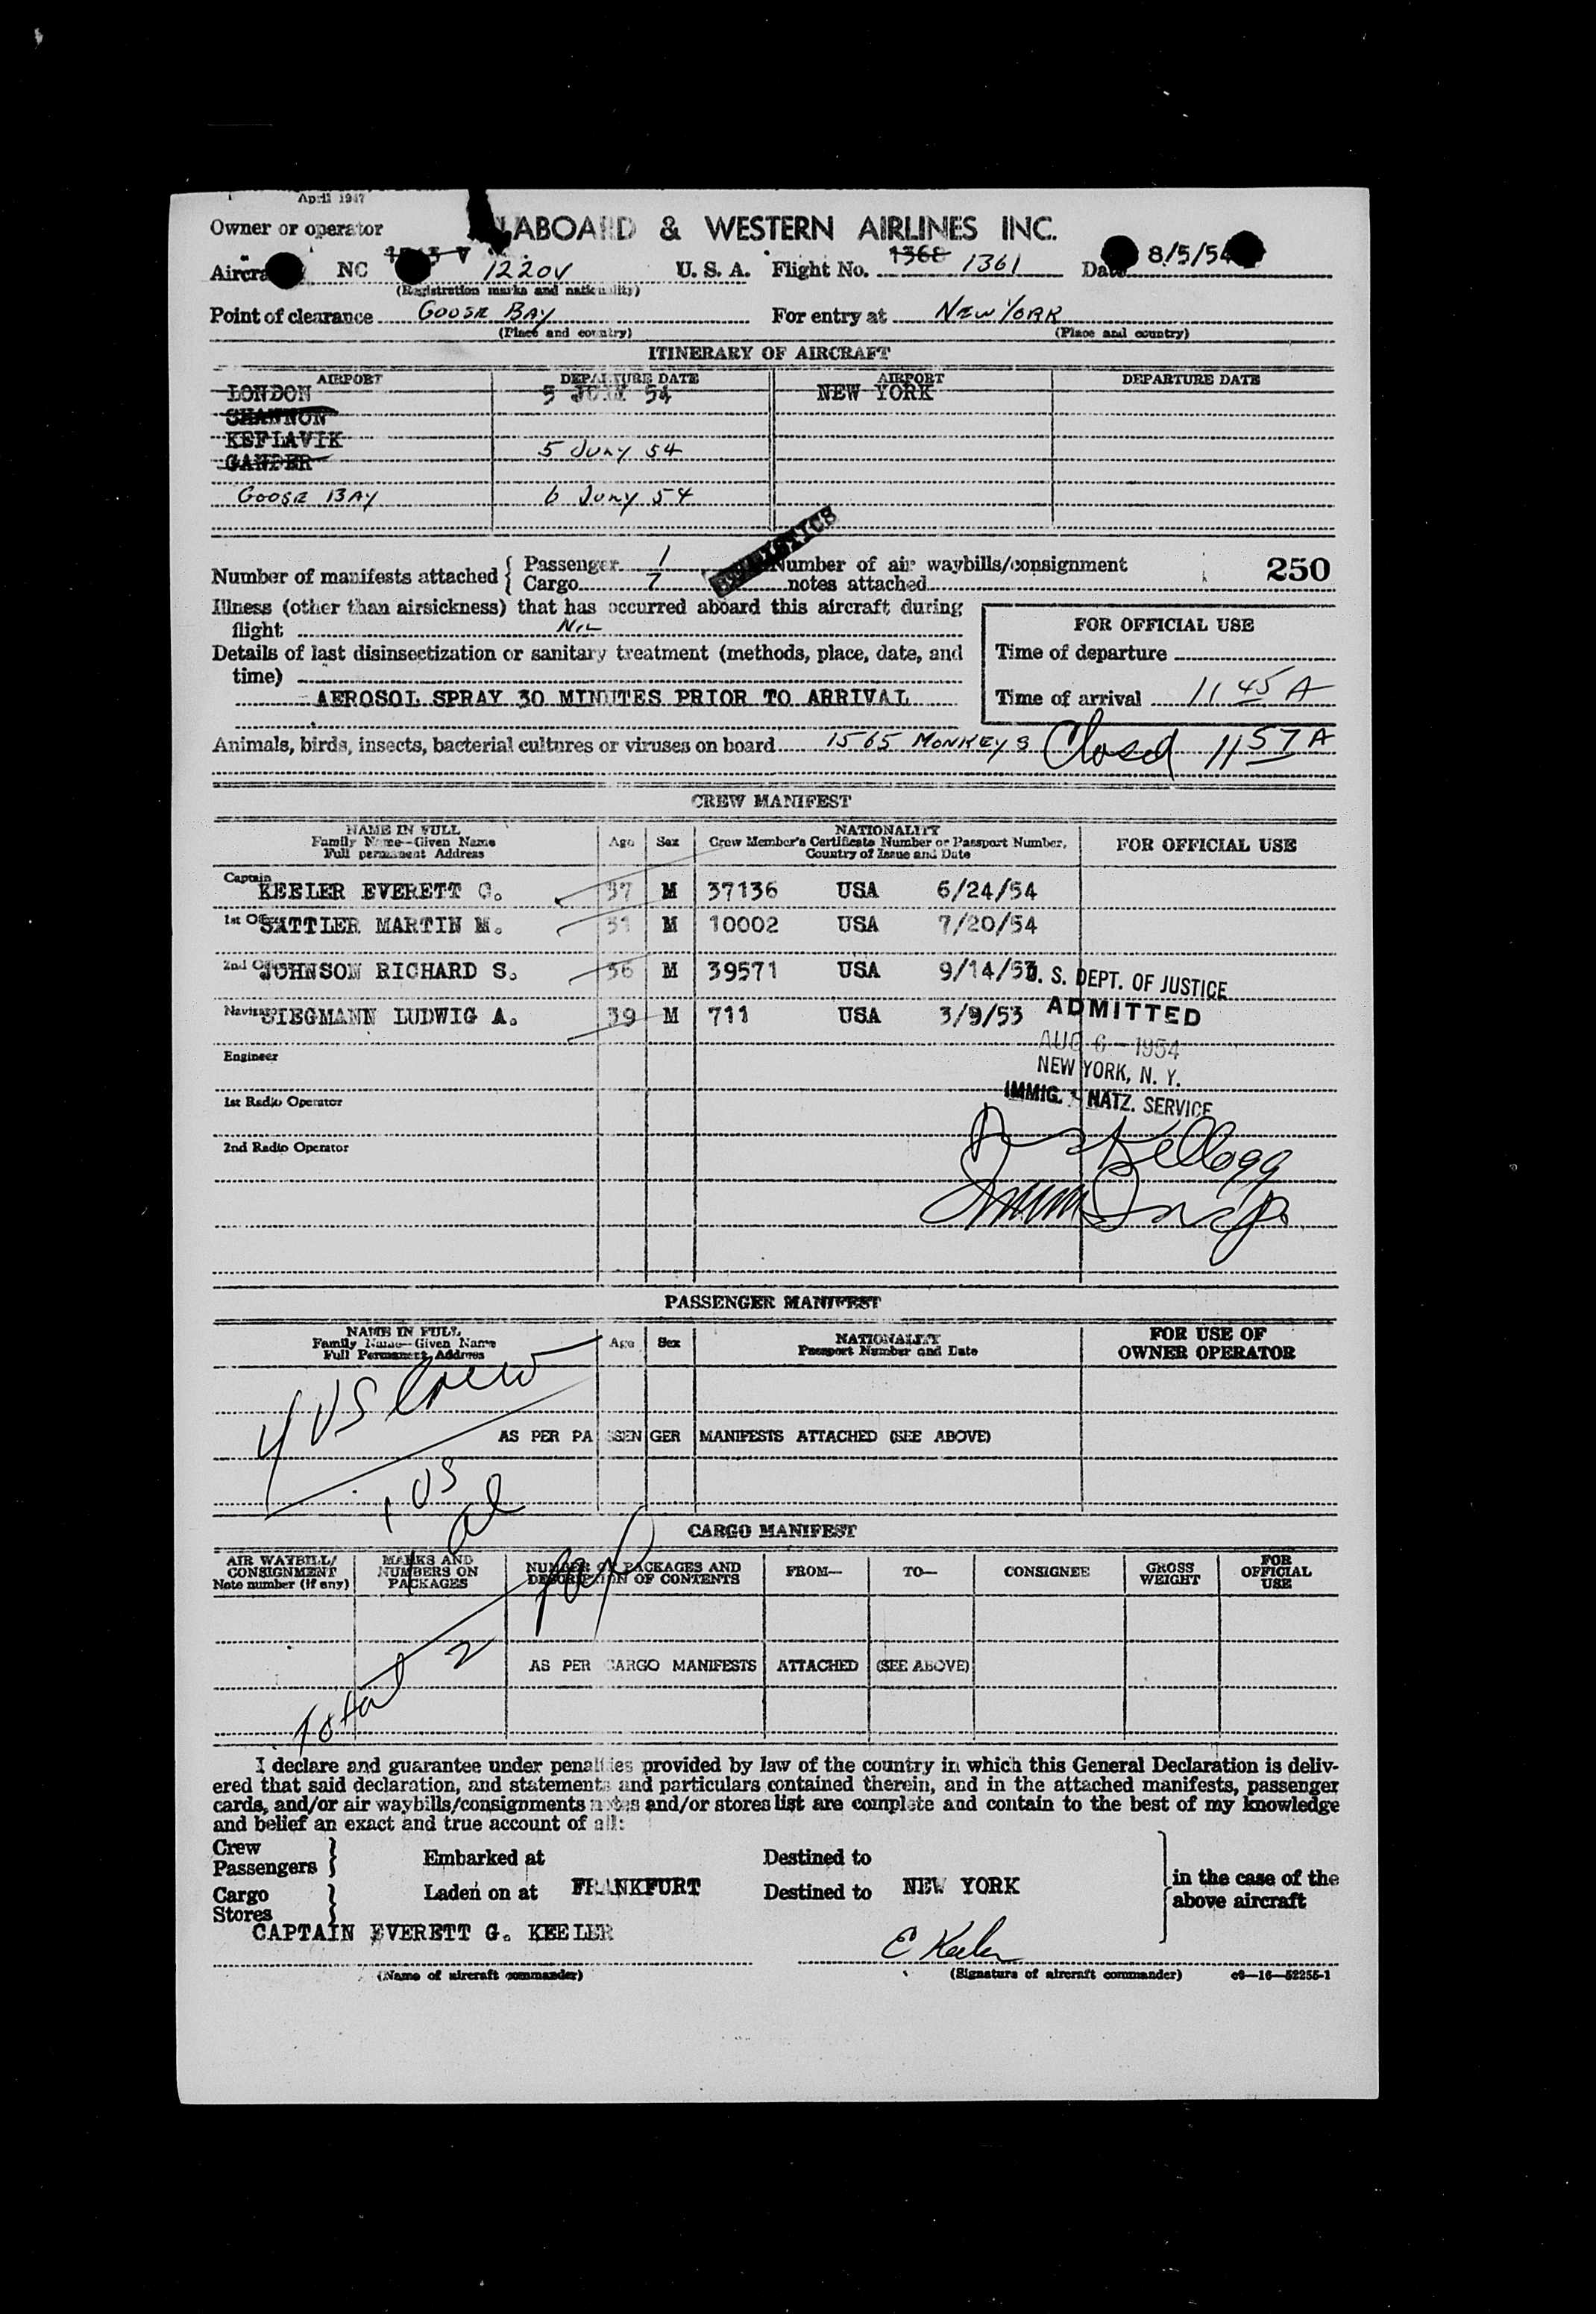 April 1947
Owner or operator ABOARD & WESTERN AIRLINES INC.
Aircra NC 1220V U. S. A. Flight No. 1368 1361 Date 8/5/54
(Registration marks and nationality)
Point of clearance GOOSE BAY For entry at NEW YORK
(Place and country) (Place and country)
ITINERARY OF AIRCRAFT
AIRPORT DEPARTURE DATE AIRPORT DEPARTURE DATE
LONDON 5 JULY 54 NEW YORK
SHANNON
KEFLAVIK 5 JULY 54
GANDER
GOOSE BAY 6 JULY 54
Number of manifests attached { Passenger 1 Number of air waybills/consignment 250
Cargo 7 notes attached
Illness (other than airsickness) that has occurred aboard this aircraft during
flight NIL
FOR OFFICIAL USE
Details of last disinsectization or sanitary treatment (methods, place, date, and
time)
Time of departure
AEROSOL SPRAY 30 MINUTES PRIOR TO ARRIVAL
Time of arrival 11 45 A
Animals, birds, insects, bacterial cultures or viruses on board 1565 MONKEYS Closed 11 57 A
CREW MANIFEST
NAME IN FULL
Family Name—Given Name
Full permanent Address
Age Sex
NATIONALITY
Crew Member's Certificate Number or Passport Number,
Country of Issue and Date
FOR OFFICIAL USE
Captain KEELER EVERETT G. 37 M 37136 USA 6/24/54
1st Off SATTLER MARTIN M. 31 M 10002 USA 7/20/54
2nd Off JOHNSON RICHARD S. 36 M 39571 USA 9/14/53
Naviga SIEGMANN LUDWIG A. 39 M 711 USA 3/9/53
U. S. DEPT. OF JUSTICE
ADMITTED
AUG 6 - 1954
NEW YORK, N. Y.
IMMIG. & NATZ. SERVICE
Engineer
1st Radio Operator
2nd Radio Operator
Kellogg
Imm Insp.
PASSENGER MANIFEST
NAME IN FULL
Family Name—Given Name
Full Permanent Address
Age Sex
NATIONALITY
Passport Number and Date
FOR USE OF
OWNER OPERATOR
4 US Crew
AS PER PASSENGER MANIFESTS ATTACHED (SEE ABOVE)
1 US
al
pax
Total 2
CARGO MANIFEST
AIR WAYBILL/
CONSIGNMENT
Note number (if any)
MARKS AND
NUMBERS ON
PACKAGES
NUMBER OF PACKAGES AND
DESCRIPTION OF CONTENTS
FROM— TO— CONSIGNEE
GROSS
WEIGHT
FOR
OFFICIAL
USE
AS PER CARGO MANIFESTS ATTACHED (SEE ABOVE)
I declare and guarantee under penalties provided by law of the country in which this General Declaration is deliv-
ered that said declaration, and statements and particulars contained therein, and in the attached manifests, passenger
cards, and/or air waybills/consignments notes and/or stores list are complete and contain to the best of my knowledge
and belief an exact and true account of all:
Crew
Passengers } Embarked at Destined to
Cargo
Stores } Laden on at FRANKFURT Destined to NEW YORK
in the case of the
above aircraft
CAPTAIN EVERETT G. KEELER E Keeler
(Name of aircraft commander) (Signature of aircraft commander) c9—16—52255-1